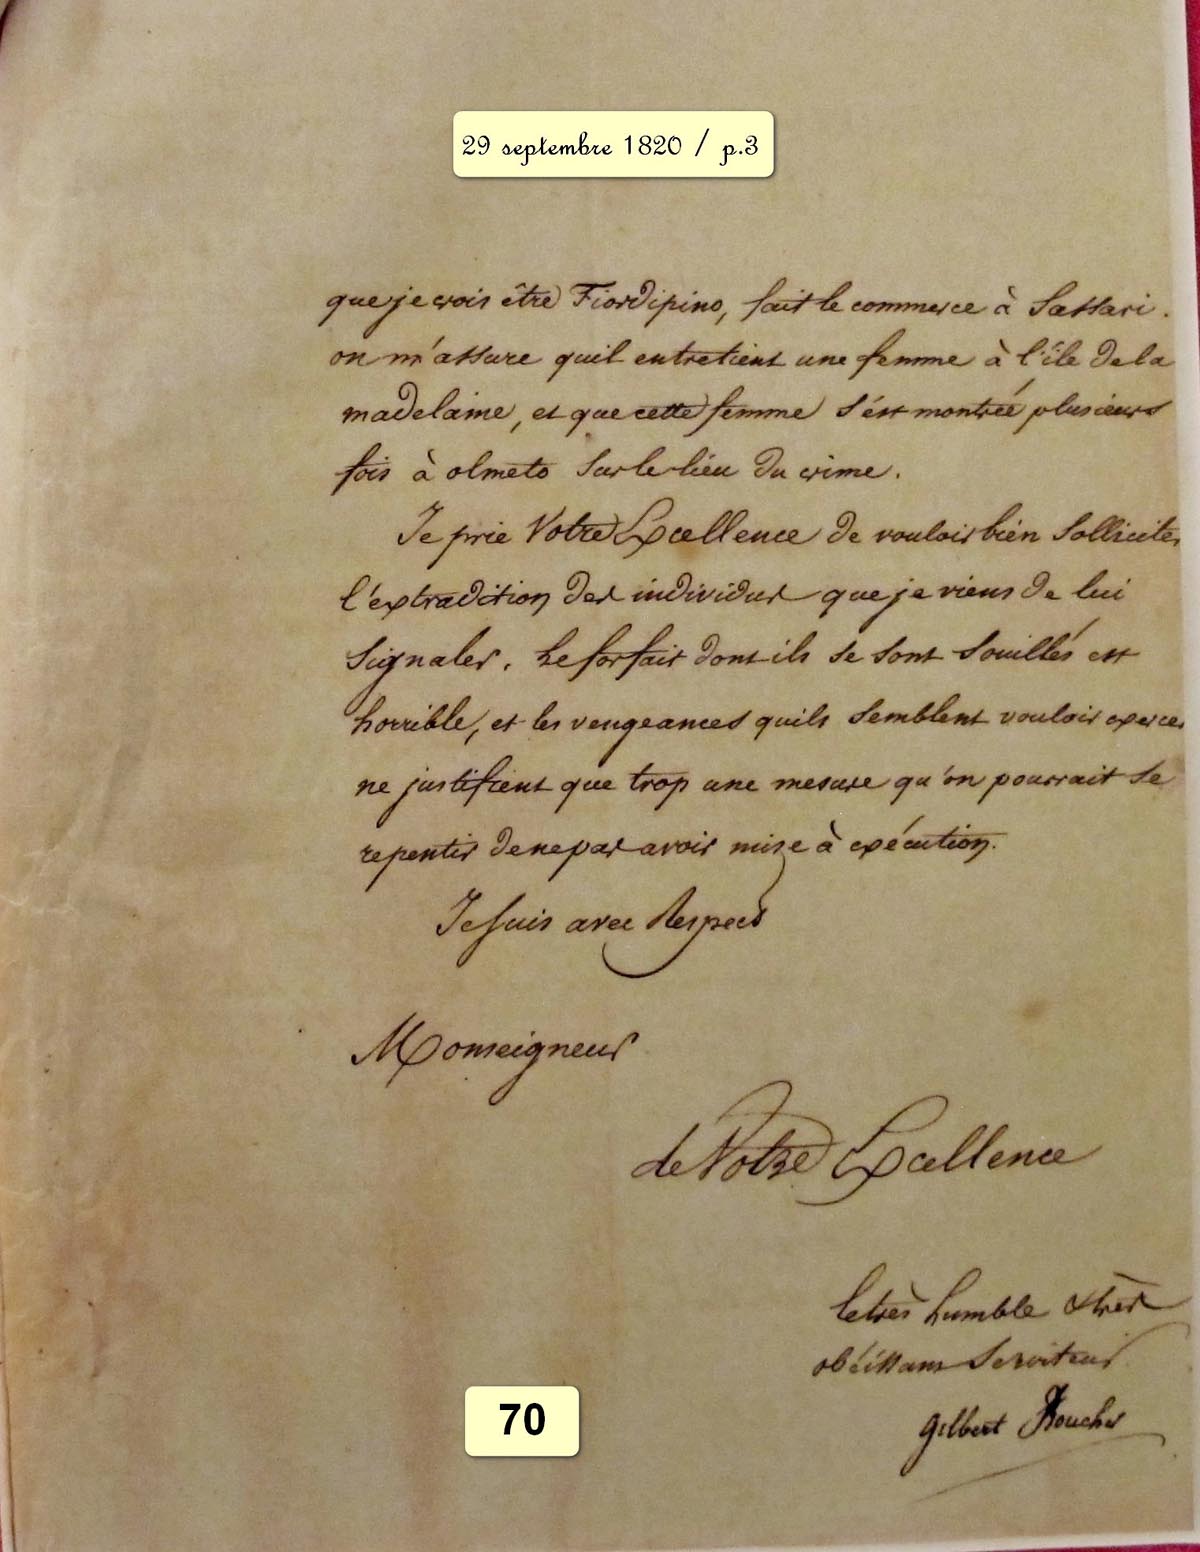 29 septembre 1820 / p.3
que je crois être Fiordipino, fait le commerce à Sassari.
on m'assure quil entretient une femme à l'île de la
madelaine, et que cette femme s'est montrée plusieurs
fois à olmeto sur le lieu du crime.
Je prie Votre Excellence de vouloir bien solliciter
l'extradition des individus que je viens de lui
signaler. Le forfait dont ils se sont souillés est
horrible, et les vengeances quils semblent vouloir exercer
ne justifient que trop une mesure qu'on pourrait se
repentir de ne pas avoir mise à exécution.
Je suis avec Respect
Monseigneur
de Votre Excellence
le très humble & très
obéissant Serviteur
gilbert Boucher
70